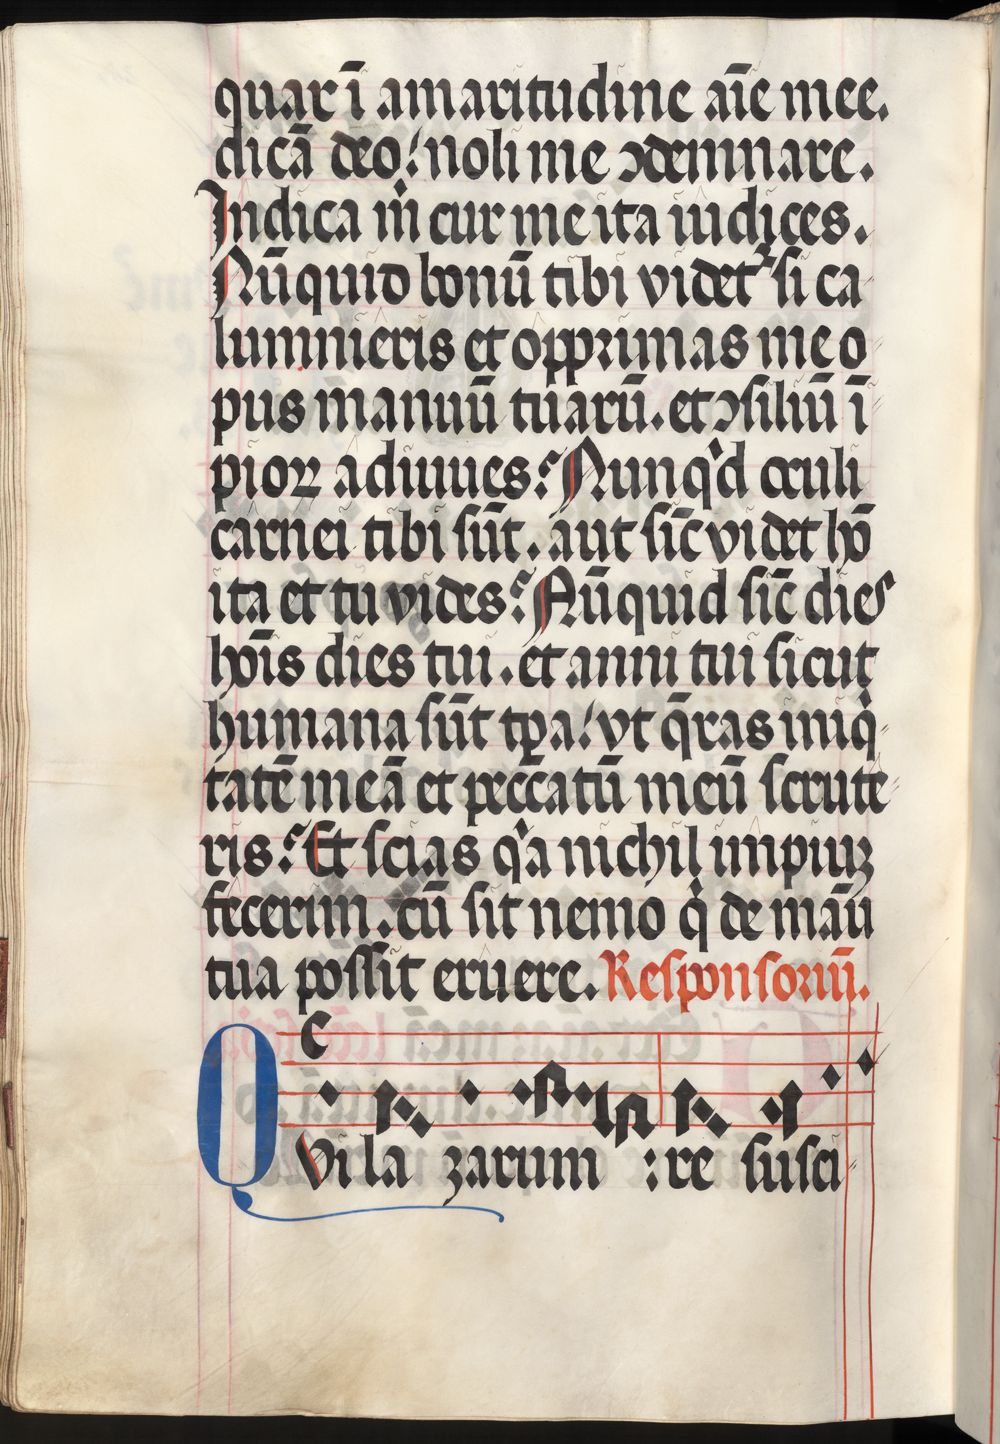 quar ī amaritudine aīe mee.
dicā deo: noli me ↄdemnare.
Indica m̄ cur me ita iudices.
Nūquid bonū tibi videt᷑ si ca
lumnieris et opprimas me o
pus manuū tuarū. et ↄsiliū ī
pioꝝ adiuues? Nunqͥd oculi
carnei tibi sūt. aut sic̄ videt hō
ita et tu vides? Nūquid sic̄ dies
hoīs dies tui. et anni tui sicut
humana sūt tp̄a: vt q̄ras iniqͥ
tatē meā et peccatū meū scrute
ris? Et scias q͛a nichil impiuꝫ
fecerim. cū sit nemo qͥ de manu
tua possit eruere. Responsoriū.
QVi la zarum : re susci